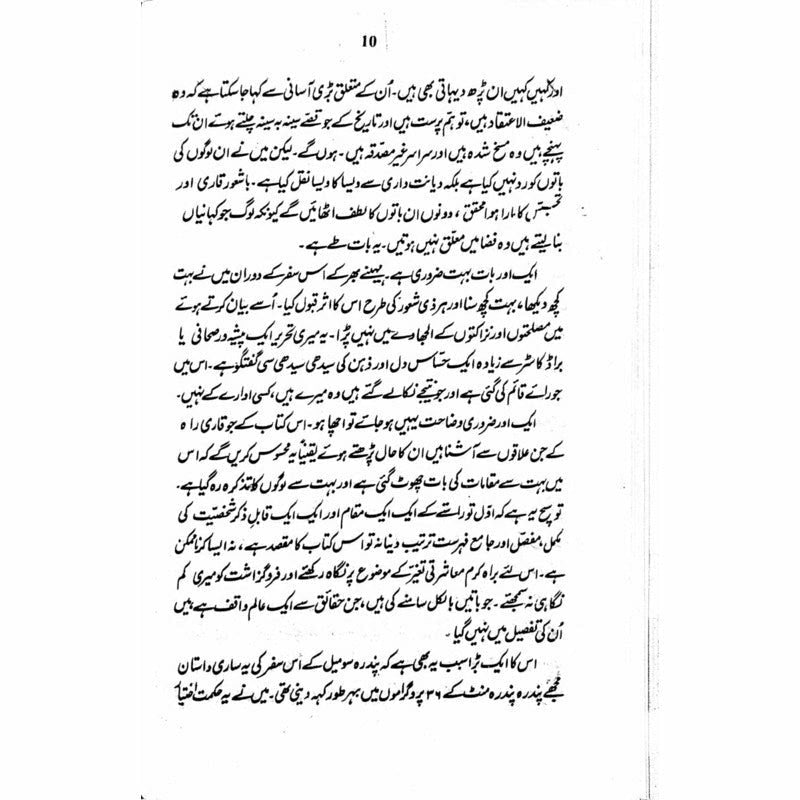 10
اور کہیں کہیں ان پڑھ دیہاتی بھی ہیں۔ اُن کے متعلق بڑی آسانی سے کہا جا سکتا ہے کہ وہ
ضعیف الاعتقاد ہیں، توہّم پرست ہیں اور تاریخ کے جو قصّے سینہ بہ سینہ چلتے ہوئے ان تک
پہنچے ہیں وہ مسخ شدہ ہیں اور سراسر غیر مصدقہ ہیں۔ ہوں گے۔ لیکن میں نے ان لوگوں کی
باتوں کو رد نہیں کیا ہے بلکہ دیانت داری سے ویسا کا ویسا نقل کیا ہے۔ باشعور قاری اور
تجسّس کا مارا ہوا محقق، دونوں ان باتوں کا لطف اٹھائیں گے کیونکہ لوگ جو کہانیاں
بنا لیتے ہیں وہ فضا میں معلّق نہیں ہوتیں۔ یہ بات طے ہے۔
ایک اور بات بہت ضروری ہے۔ مہینے بھر کے اس سفر کے دوران میں نے بہت
کچھ دیکھا، بہت کچھ سنا اور ہر ذی شعور کی طرح اس کا اثر قبول کیا۔ اُسے بیان کرتے ہوئے
میں مصلحتوں اور نزاکتوں کے الجھاوے میں نہیں پڑا۔ یہ میری تحریر ایک پیشہ ور صحافی یا
براڈ کاسٹر سے زیادہ ایک حسّاس دل اور ذہن کی سیدھی سیدھی سی گفتگو ہے۔ اس میں
جو رائے قائم کی گئی ہے اور جو نتیجے نکالے گئے ہیں وہ میرے ہیں، کسی ادارے کے نہیں۔
ایک اور ضروری وضاحت یہیں ہو جائے تو اچھا ہو۔ اس کتاب کے جو قاری راہ
کے جن علاقوں سے آشنا ہیں ان کا حال پڑھتے ہوئے یقیناً یہ محسوس کریں گے کہ اس
میں بہت سے مقامات کی بات چھوٹ گئی ہے اور بہت سے لوگوں کا تذکرہ رہ گیا ہے۔
تو سچ یہ ہے کہ اوّل تو راستے کے ایک ایک مقام اور ایک ایک قابلِ ذکر شخصیّت کی
مکمل، مفصّل اور جامع فہرست ترتیب دینا نہ تو اس کتاب کا مقصد ہے، نہ ایسا کرنا ممکن
ہے۔ اس لئے براہ کرم معاشرتی تغیّر کے موضوع پر نگاہ رکھئے اور فروگزاشت کو میری کم
نگاہی نہ سمجھئے۔ جو باتیں بالکل سامنے کی ہیں، جن حقائق سے ایک عالم واقف ہے میں
اُن کی تفصیل میں نہیں گیا۔
اس کا ایک بڑا سبب یہ بھی ہے کہ پندرہ سو میل کے اس سفر کی یہ ساری داستان
مجھے پندرہ پندرہ منٹ کے ۳۶ پروگراموں میں بہر طور کہہ دینی تھی۔ میں نے یہ حکمت اختیا